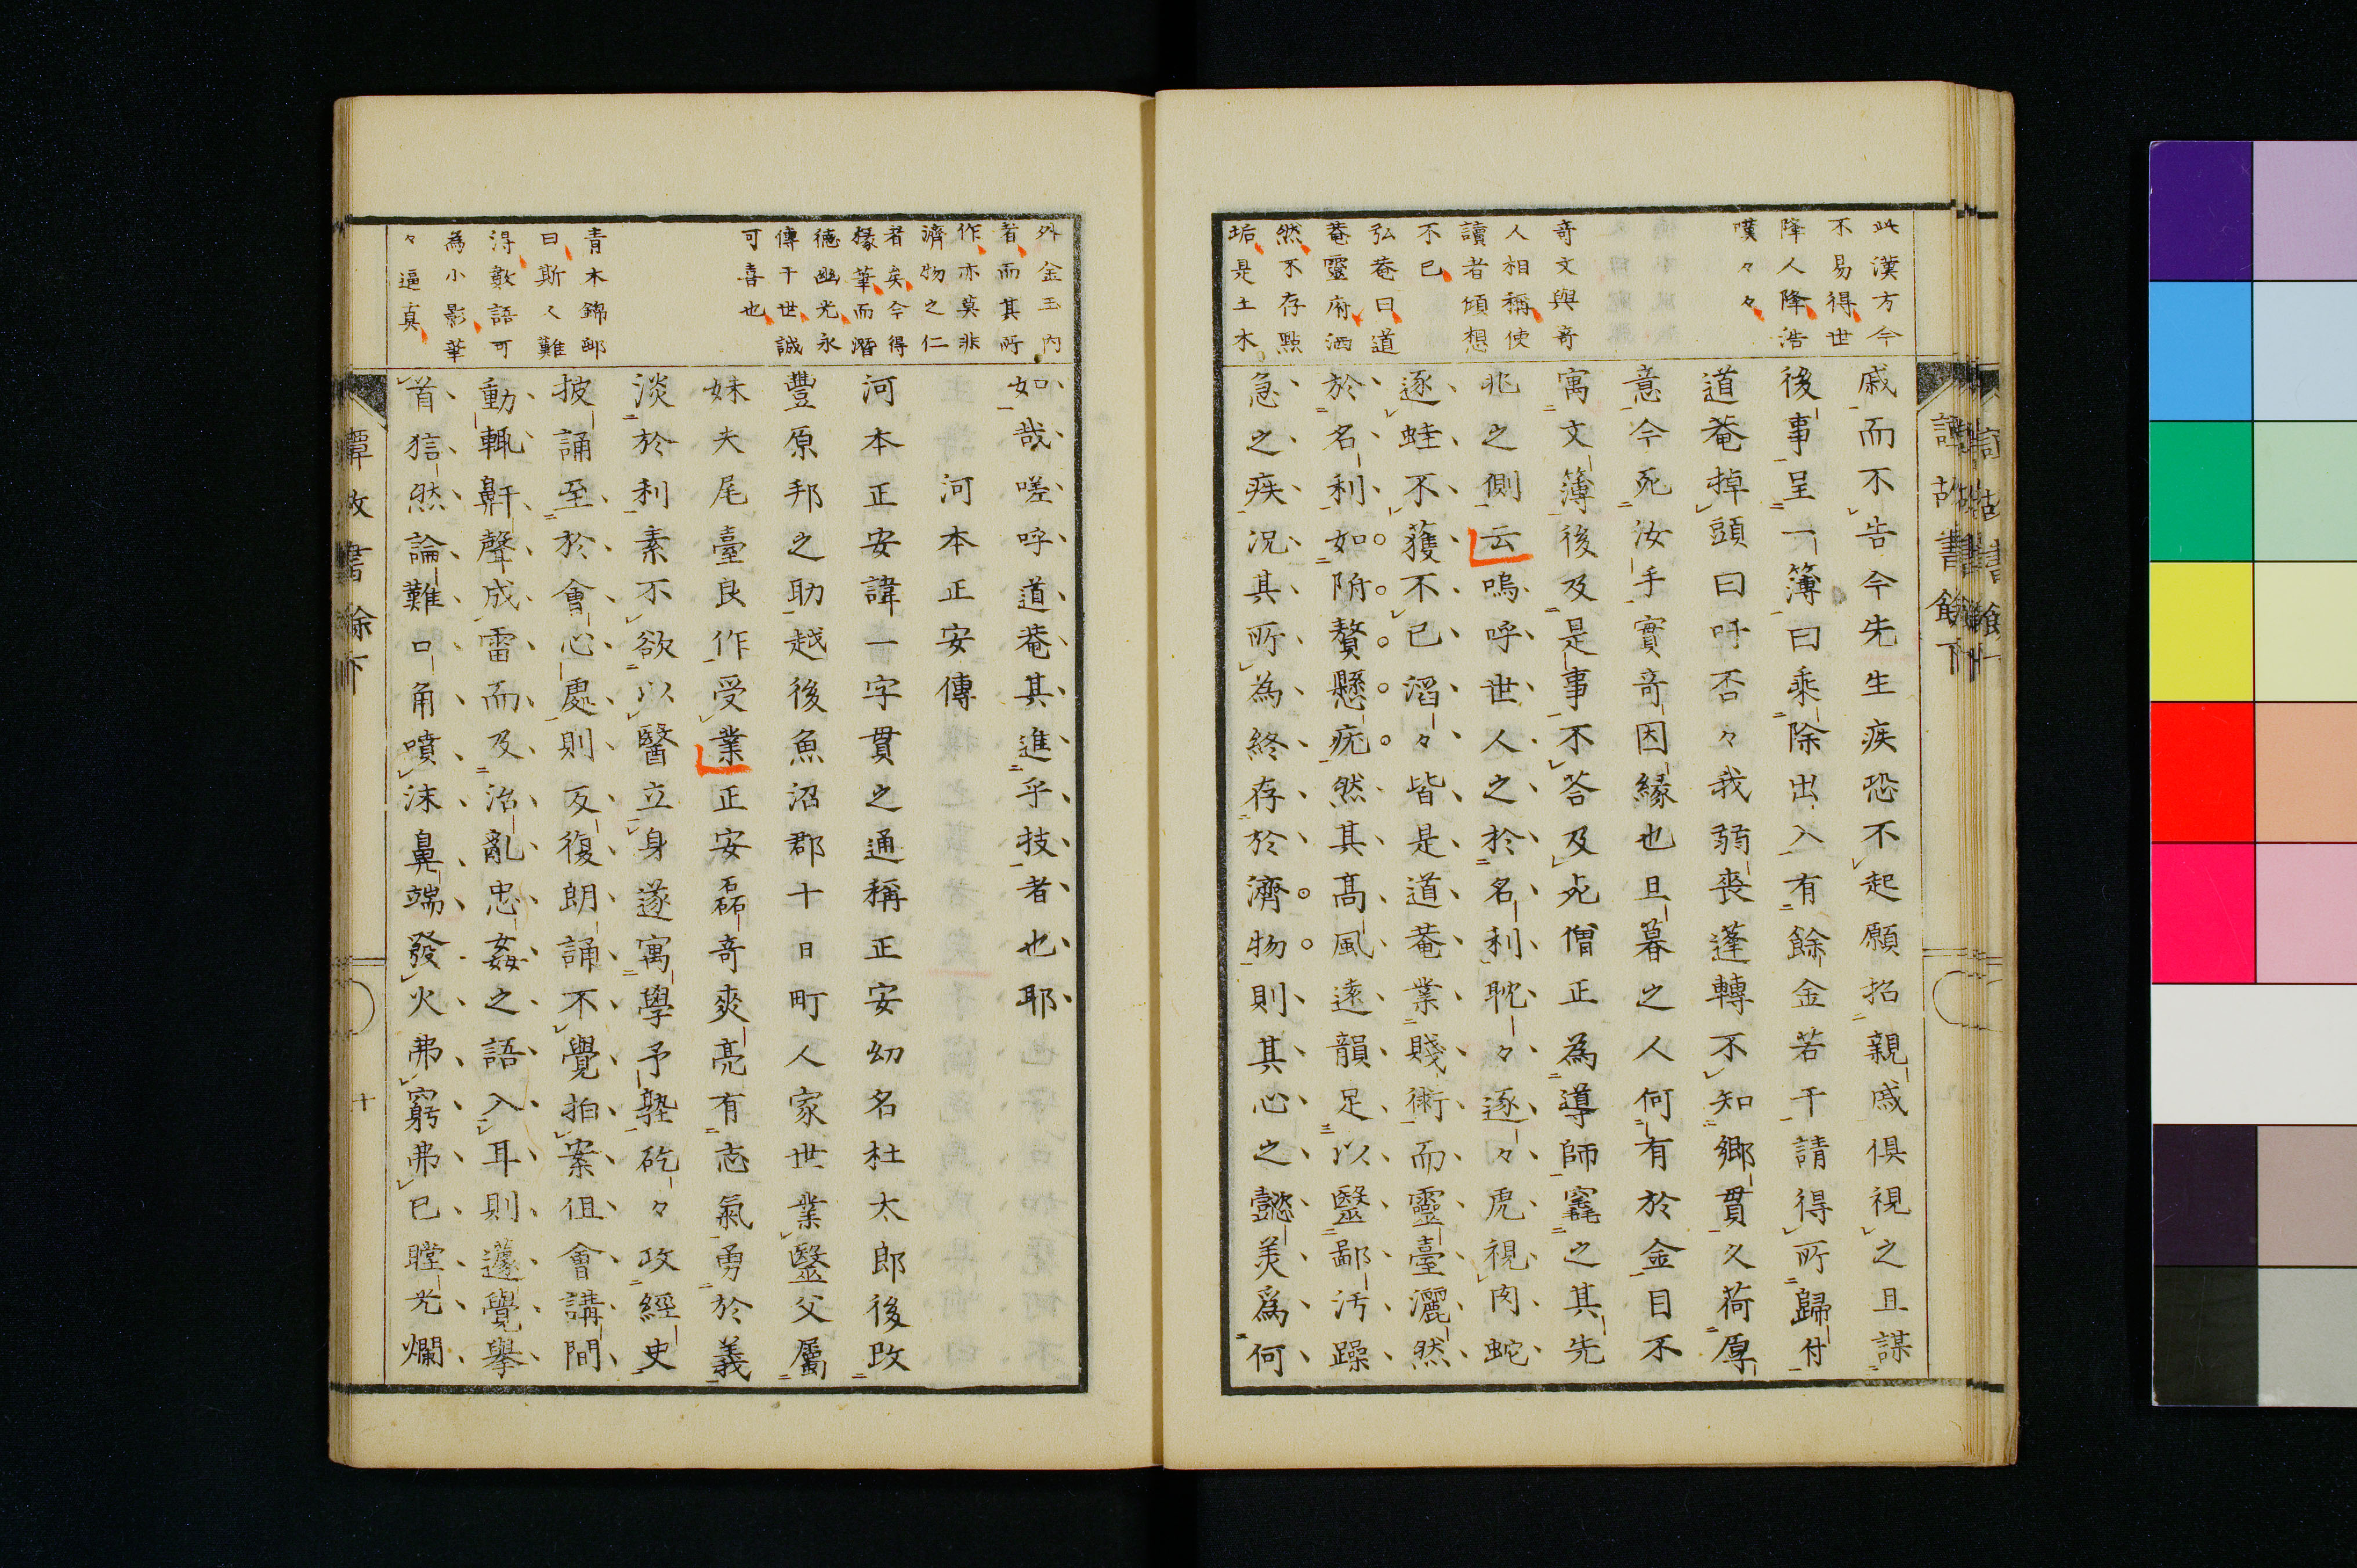 此漢方今
不易得世
降人降浩
嘆々々
奇文與奇
人相稱使
讀者傾想
不已
弘菴曰道
菴靈府洒
然不存點
垢是土木
戚而不告今先生疾恐不起願招親戚倶視之且謀
後事呈一簿曰乘除出入有餘金若干請得所歸付
道菴掉頭曰吁否々我弱喪蓬轉不知郷貫久荷厚
意今死汝手實奇因縁也且暮之人何有於金目不
寓文簿後及是事不荅及死僧正為導師窆之其先
兆之側云嗚呼世人之於名利眈々逐々虎視肉蛇
逐蛙不獲不已滔々皆是道菴業賤術而靈臺灑然
於名利如附贅懸疣然其高風遠韻足以醫鄙汚躁
急之疾況其所為終存於濟物則其心之懿美為何
譚故書餘下
外金玉内
者而其所
作亦莫非
濟物之仁
者矣今得
椽華而潛
徳幽光永
傳于世誠
可喜也
青木錦邨
曰斯人難
得數語可
為小影華
々逼真
如哉嗟呼道菴其進乎技者也耶
河本正安傳
河本正安諱一字貫之通稱正安幼名杜太郎後改
豐原邦之助越後魚沼郡十日町人家世業醫父屬
妹夫尾臺良作受業正安磊奇爽亮有志氣勇於義
淡於利素不欲以醫立身遂寓學予塾矻々攻經史
披誦至於會心處則反復朗誦不覺拍案徂會講間
動輒鼾聲成雷而及治亂忠姦之語入耳則蘧覺擧
首狺然論難口角噴沫鼻端發火弗窮弗已瞠光爛
譚故書餘下
十